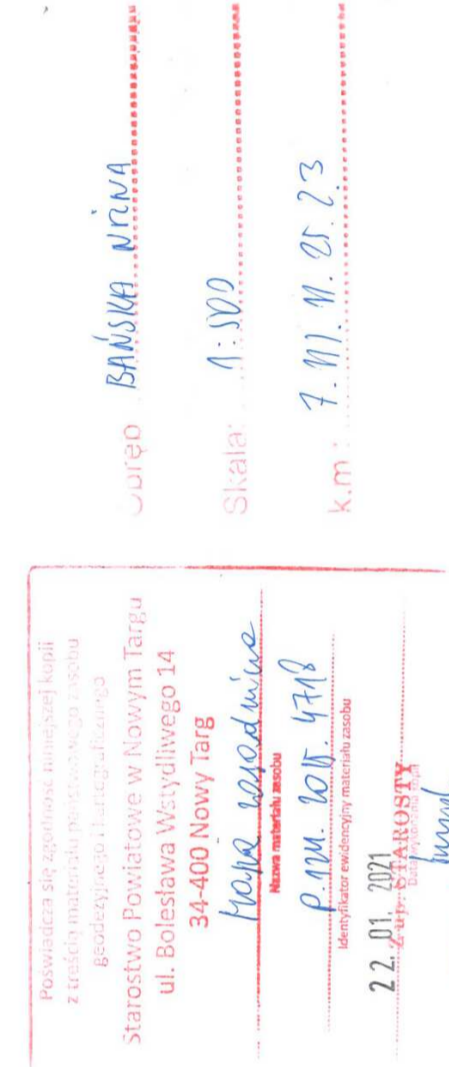 Poświadcza się zgodność niniejszej kopii
z treścią materiału państwowego zasobu
geodezyjnego i kartograficznego
Starostwo Powiatowe w Nowym Targu
ul. Bolesława Wstydliwego 14
34-400 Nowy Targ
Mapa zasadnicza
Nazwa materiału zasobu
2015. 4718
Identyfikator ewidencyjny materiału zasobu
22. 01. 2021
Z up. STAROSTY
Obręb BAŃSKA NIŻNA
Skala: 1:500
k.m : 7. 11. 25. 23